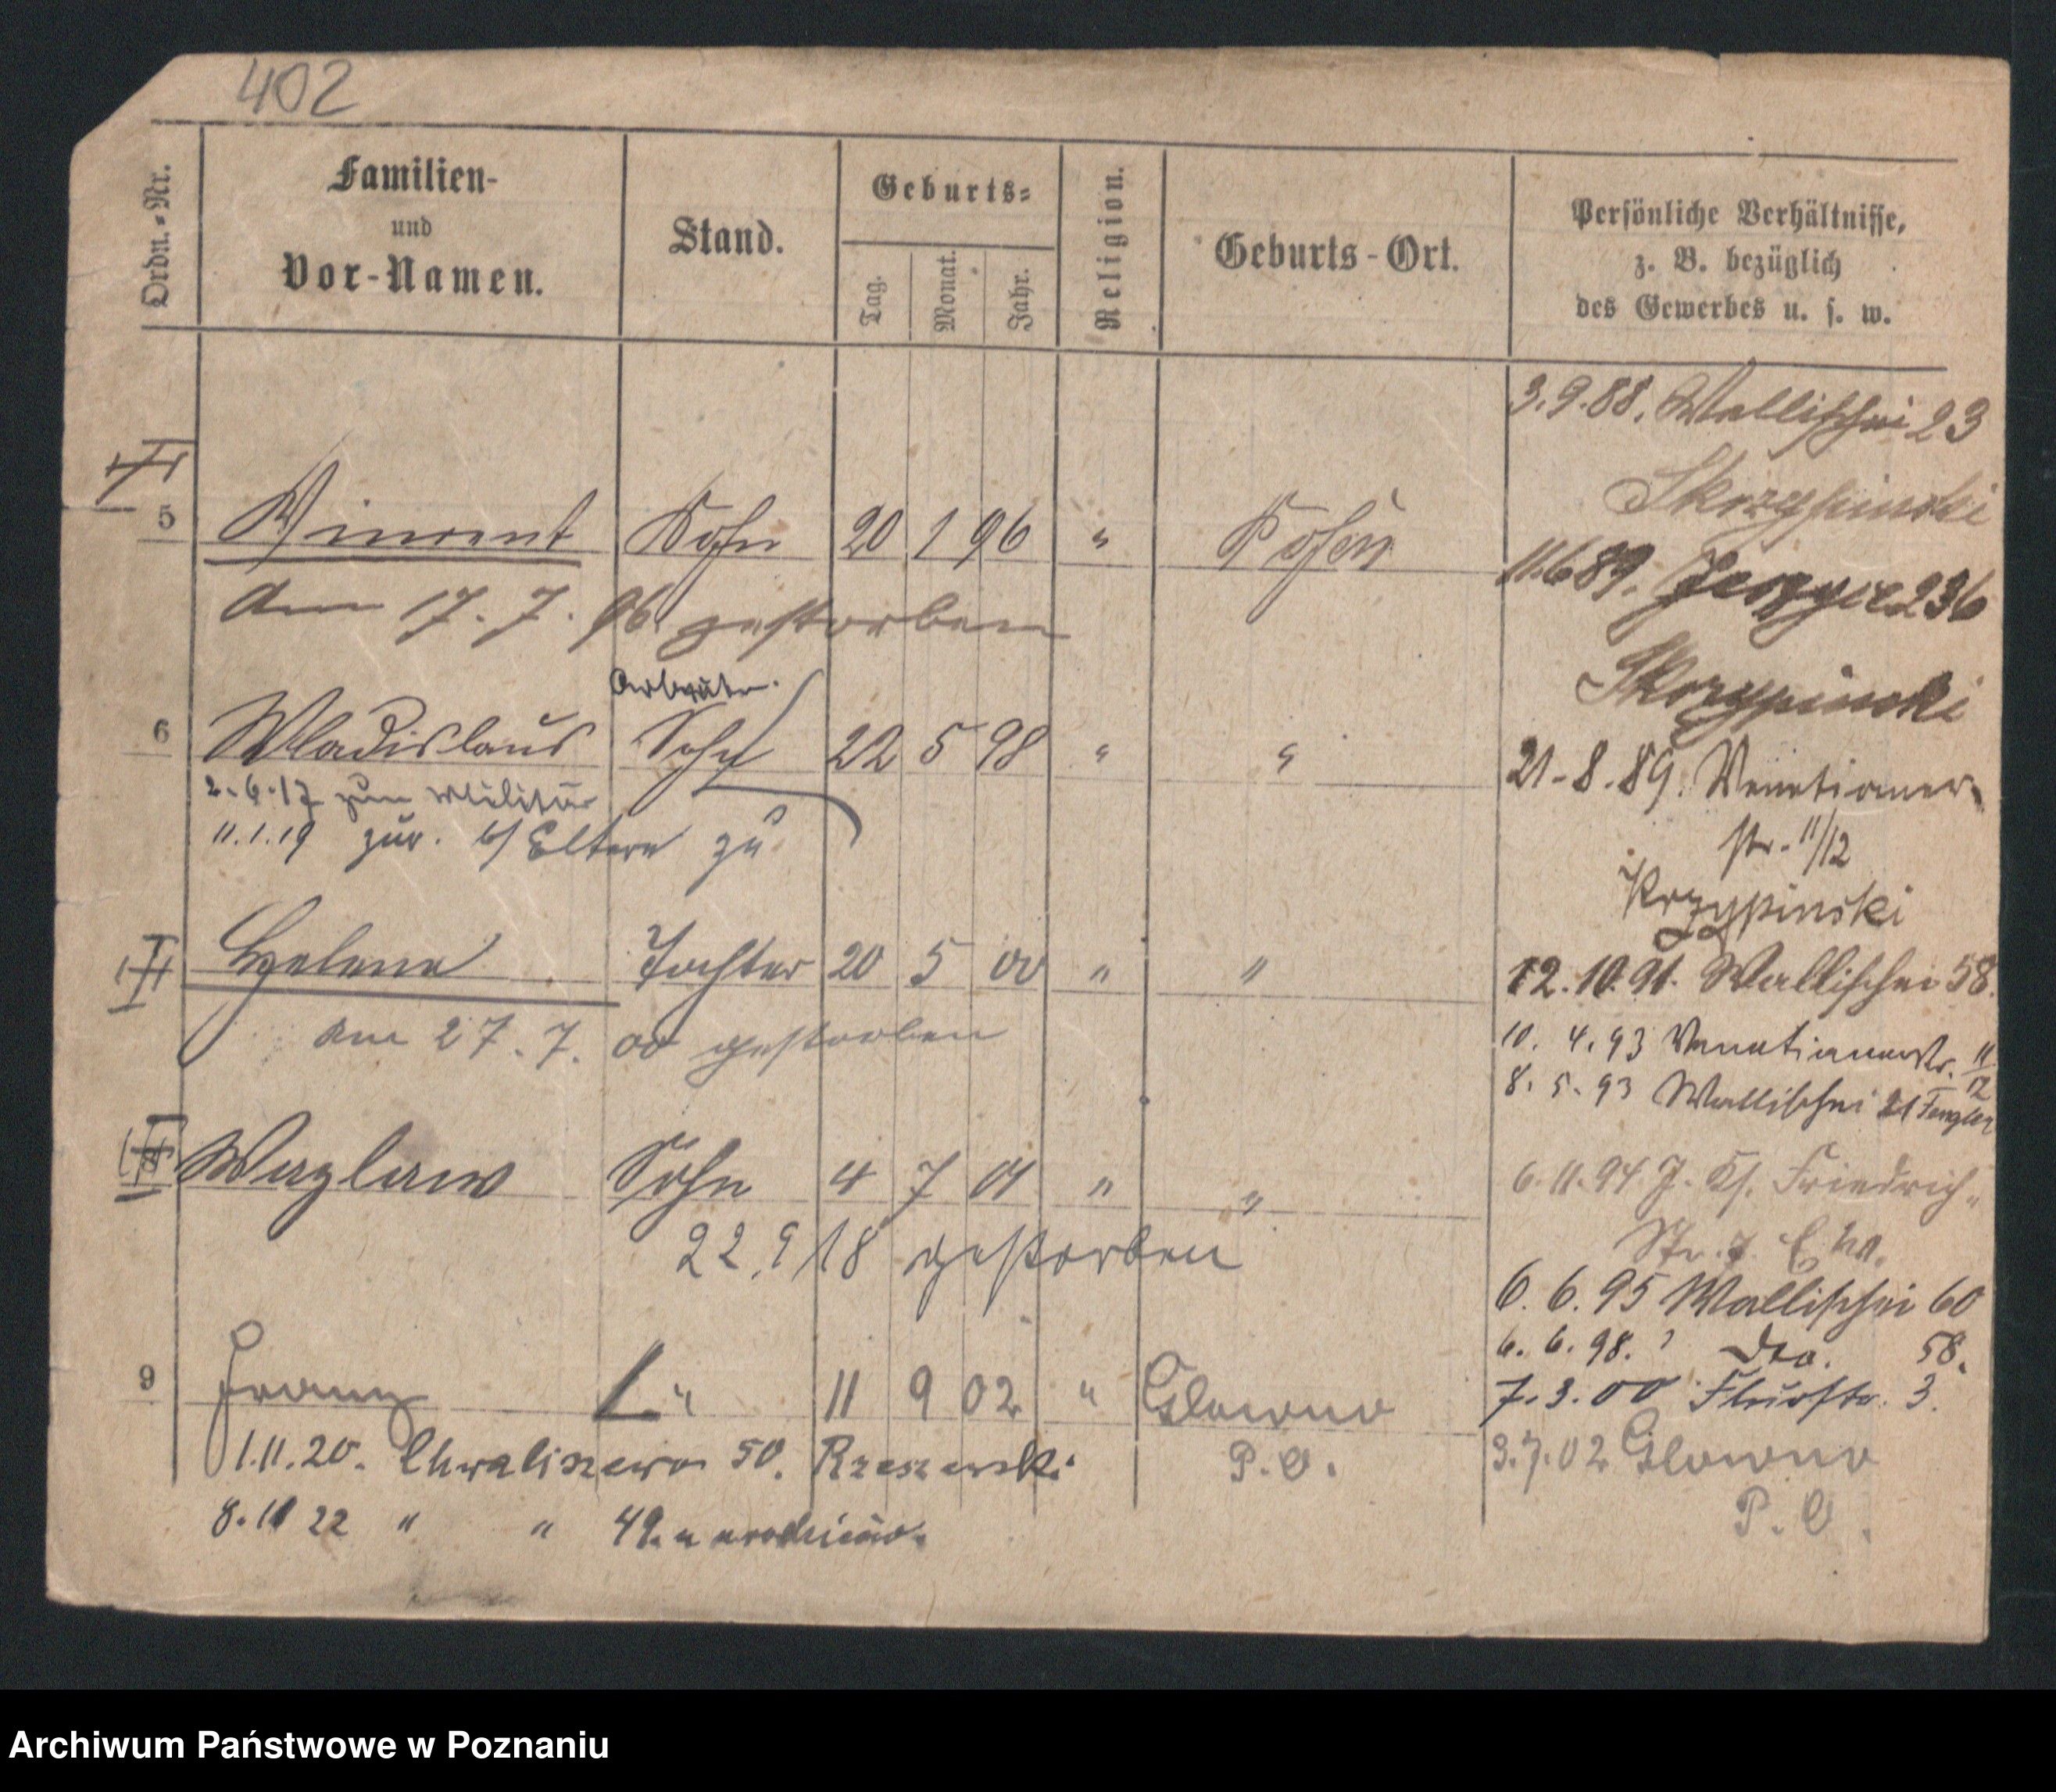 402
Ordn.-Nr.
Familien-
und
Vor-Namen.
Stand.
Geburts-
Tag.
Monat.
Jahr.
Religion.
Geburts-Ort.
Persönliche Verhältnisse,
z. B. bezüglich
des Gewerbes u. s. w.
5 Vincent Sohn 20 1 96 " Posen
am 17. 7. 96 gestorben
6 Wladislaus Sohn 22 5 98 " "
2.6.17 zum Militär
11.1.19 zur. b/ Eltern zu
Helene Tochter 20 5 00 " "
am 27. 7. 00 gestorben
Wazlaw Sohn 4 7 01 " "
22.9 18 gestorben
9 Franz " 11 9 02 " Glowno
P. O.
1.11.20. Chwaliszewo 50. Rzeszewski
8.11 22 " " 49. u rodziców.
3.9.88. Wallischei 23
Skrzypinski
11.6 89. 236
Skrzypinski
21.8.89. Venetianer
str. 11/12
Krzypinski
12.10.91. Wallischei 58.
10. 4. 93 Venetianerstr. 11/12
8. 5. 93 Wallischei 21 Fengler
6.11.94 Friedrich-
Str.
6. 6. 95 Wallischei 60
6. 6. 98. dto. 58.
7.3.00 Flurstr. 3.
3.7.02 Glowno
P. O.
Archiwum Państwowe w Poznaniu